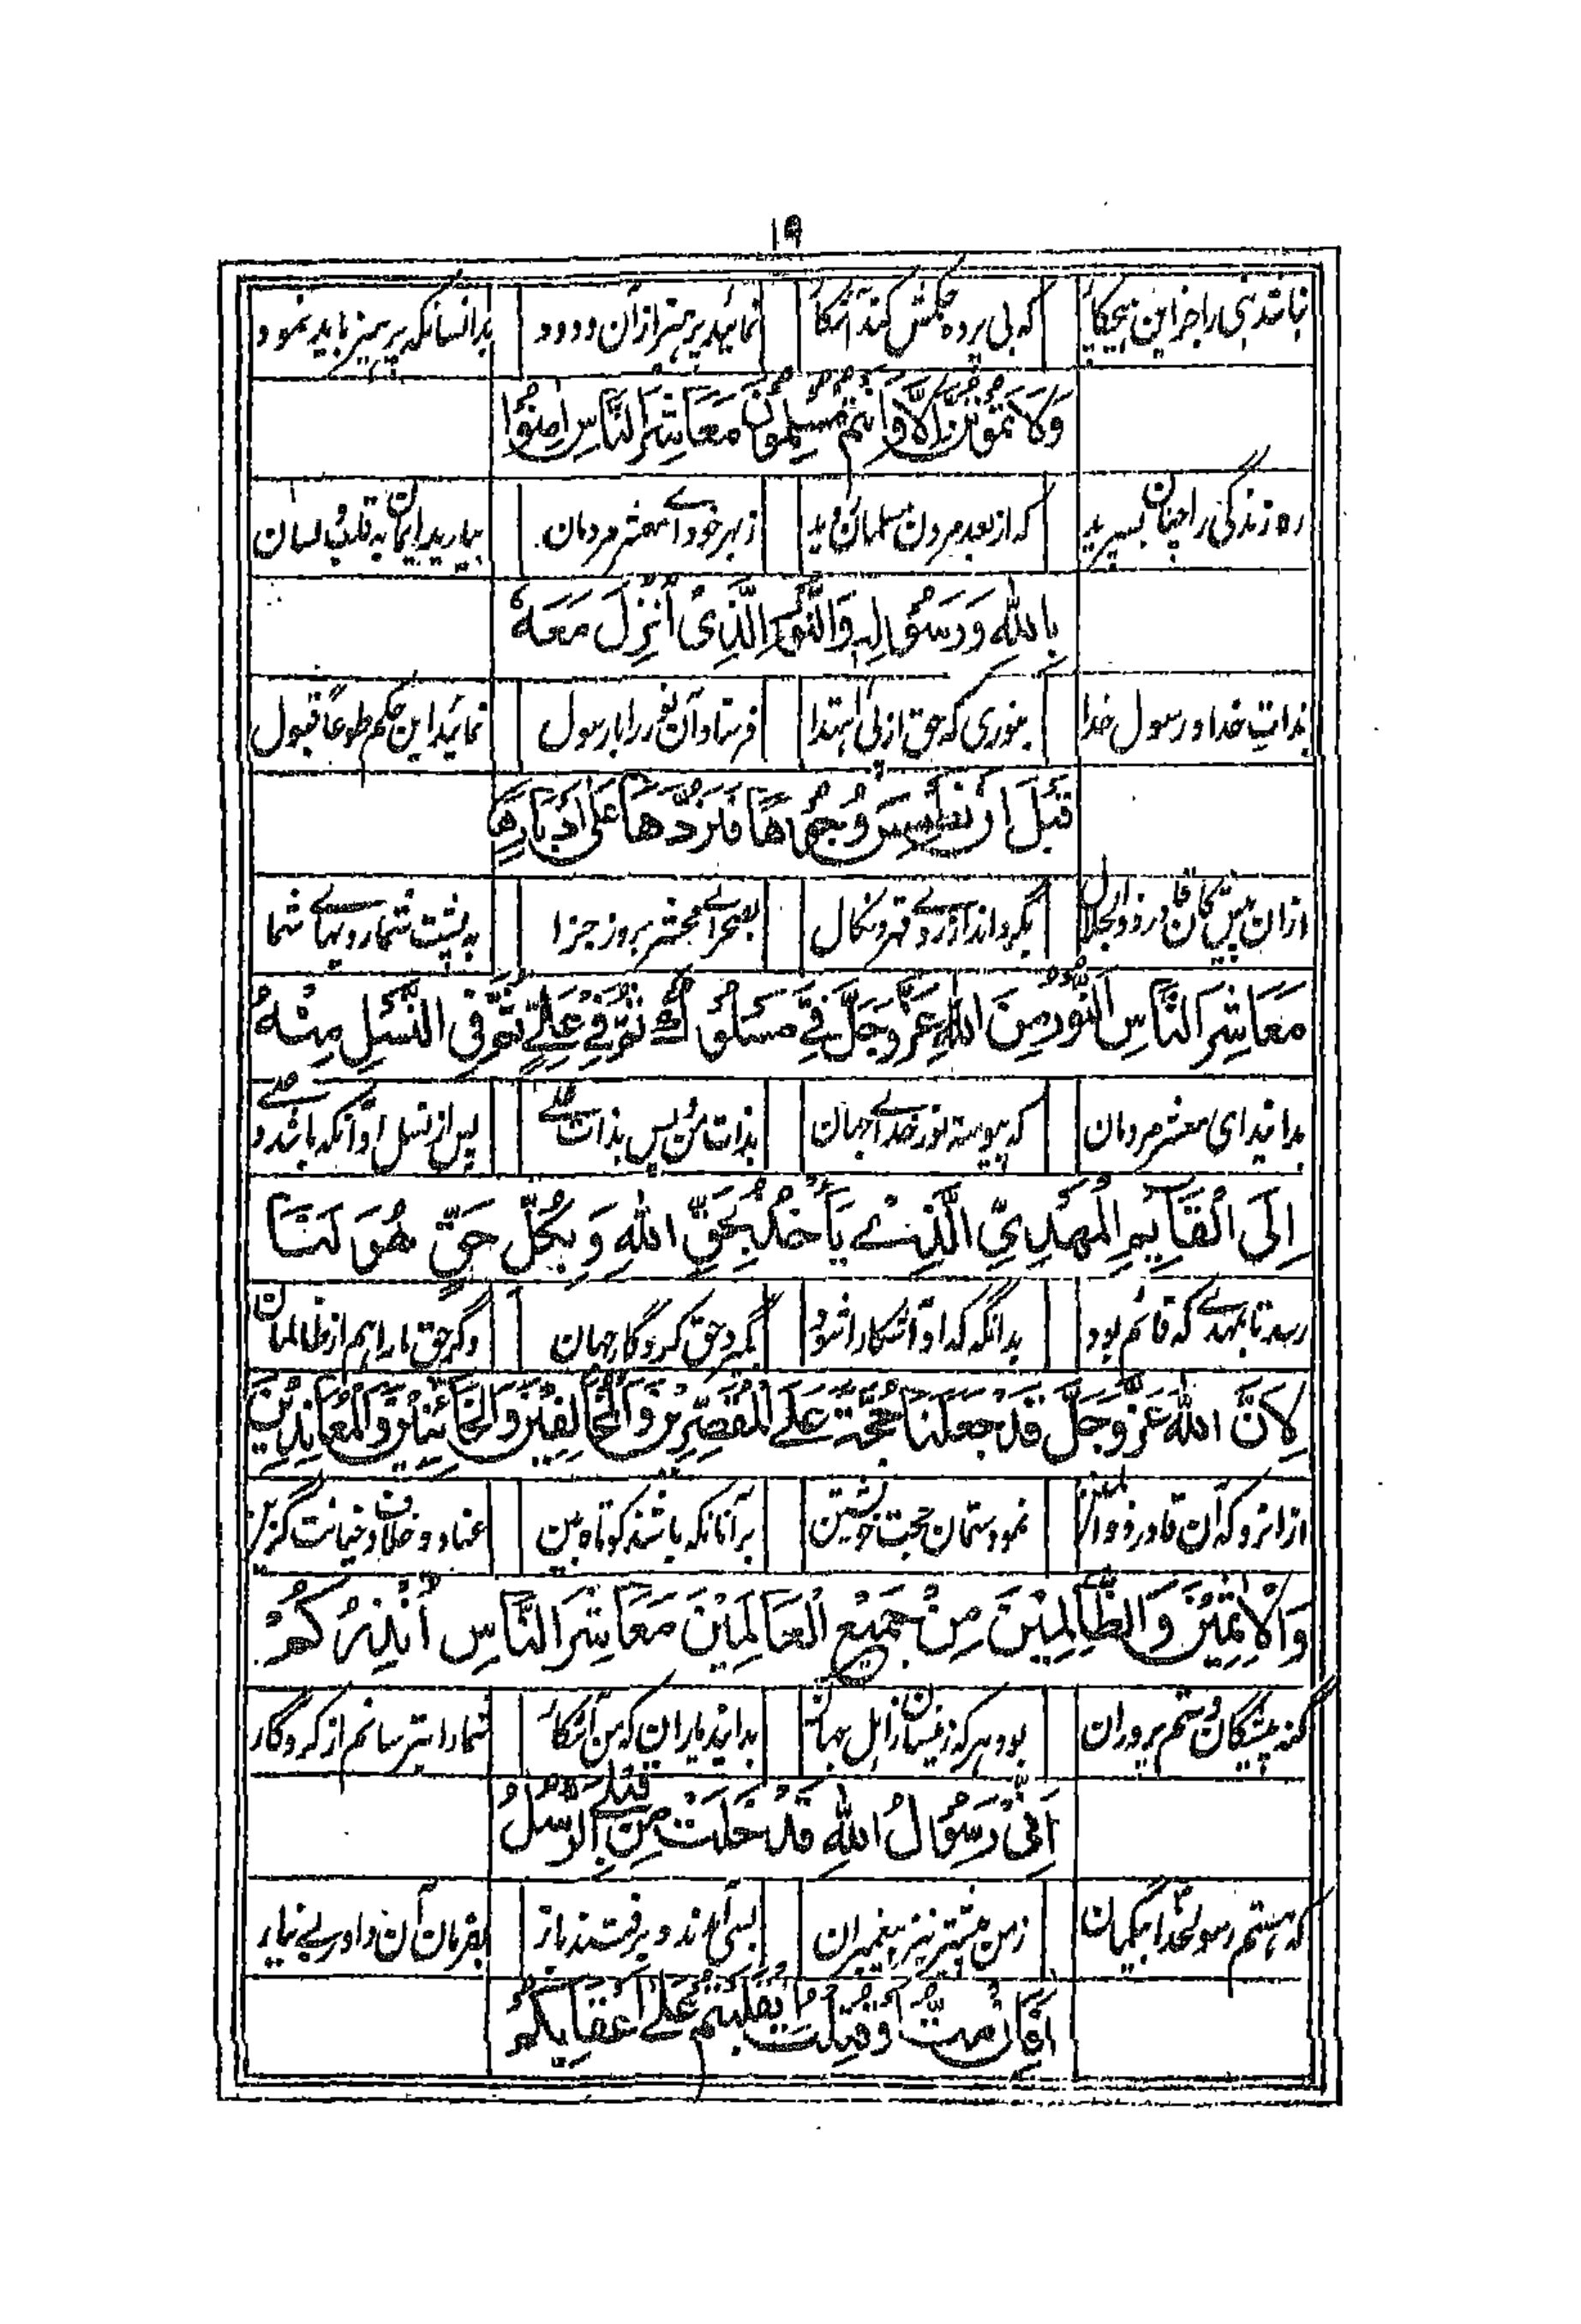 ۱۹
نباشد نبی را جز این هیچ کار که بی پرده حکمش کند آشکار نمائید پرهیز از آن ودود بدانسانکه پرهیز باید نمود
وَلَا تَمُوْتُنَّ اِلَّا وَاَنْتُمْ مُسْلِمُوْنَ مَعَاشِرَ النَّاسِ اٰمِنُوْا
ره زندگی را چنان بسپرید که از بعد مردن مسلمان بوید ز بهر خود اے معشر مردمان بیارید ایمان به قلب و لسان
بِاللهِ وَرَسُوْلِهٖ وَالنُّوْرِ الَّذِیْ اُنْزِلَ مَعَهٗ
بذاتِ خدا و رسول خدا بنوری که حق از پی اهتدا فرستاد آن نور را با رسول نمائید این حکم طوعًا قبول
قَبْلَ اَنْ نَطْمِسَ وُجُوْهًا فَنَرُدَّهَا عَلٰی اَدْبَارِهَا
ازان پیش کان قادر ذوالجلال بگرداند از روے قهر و نکال بصحراے محشر بروز جزا به پشت شما رویهاے شما
مَعَاشِرَ النَّاسِ النُّوْرُ مِنَ اللهِ عَزَّوَجَلَّ فِیَّ مَسْلُوْكٌ ثُمَّ فِیْ عَلِیٍّ ثُمَّ فِی النَّسْلِ مِنْهُ
بدانید ای معشر مردمان که پیوسته نور خداے جهان بذات من پس بذات علے پس از نسل او آنکه باشد ولے
اِلَی الْقَآئِمِ الْمَهْدِیِّ الَّذِیْ یَأْخُذُ بِحَقِّ اللهِ وَبِکُلِّ حَقٍّ هُوَ لَنَا
رسد تا بمهدے که قائم بود بدانگه که او آشکارا شود بگیرد حق کردگار جهان دگر حق ما را هم از ظالمان
لِاَنَّ اللهَ عَزَّوَجَلَّ قَدْ جَعَلَنَا حُجَّةً عَلَی الْمُقَصِّرِیْنَ وَالْمُخَالِفِیْنَ وَالْخَآئِنِیْنَ وَالْمُعَانِدِیْنَ
ازانرو که آن قادر ذوالمنن نمودستمان حجت خویشتن بر آنانکه باشند کوتاه بین عناد و خلاف و خیانت گزین
وَالْاٰثِمِیْنَ وَالظَّالِمِیْنَ مِنْ جَمِیْعِ الْعَالَمِیْنَ مَعَاشِرَ النَّاسِ اُنْذِرُکُمْ
گنه پیشگان و ستم پروران بود هر که زیشان ز اهل جهان بدانید یاران که من آشکار شما را بترسانم از کردگار
اَنِّیْ رَسُوْلُ اللهِ قَدْ خَلَتْ مِنْ قَبْلِیَ الرُّسُلُ
که هستم رسول خدا بیگمان ز من پیشتر نیز پیغمبران بسی آمدند و برفتند باز بفرمان آن داور بے نیاز
اَفَاِنْ مِتُّ اَوْ قُتِلْتُ انْقَلَبْتُمْ عَلٰی اَعْقَابِکُمْ